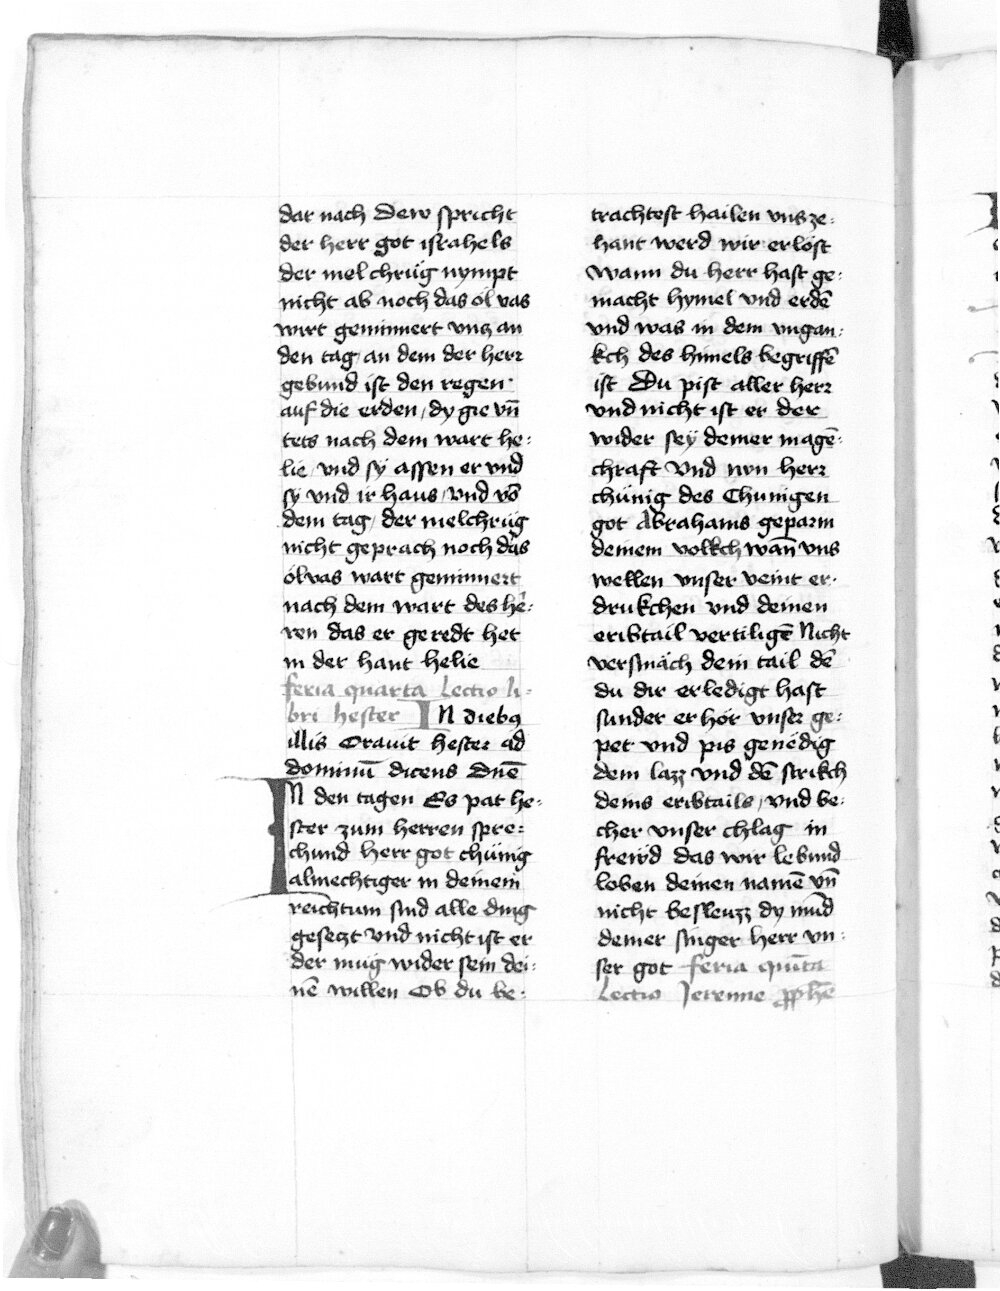 dar nach Dew spricht
der herr got israhels
der mel chrůg nympt
nicht ab noch das öl vas
wirt geminnert vnts an
den tag an dem der herr
gebund ist den regen
auf die erden / dy gie vn̄
tets nach dem wart he:
lie / vnd sy assen er vnd
sy vnd ir haus / vnd võ
dem tag / der melchrůg
nicht geprach noch das
ölvas wart geminnert
nach dem wart des he:
ren das er geredt het
in der hant helie
feria quarta Lectio li:
bri hester IN diebꝫ
illis Orauit hester ad
dominū dicens Dn̄e
IN den tagen Es pat he:
ster zum herren spre:
chund herr got chünig
almechtiger in deinem
reichtum sind alle ding
geseczt vnd nicht ist er
der mug wider sein dei:
nē willen Ob du be:
trachtest hailen vns ze:
hant werd wir erlöst
wann du herr hast ge:
macht hymel vnd erdē
vnd was in dem vngan:
kch des himels begriffē
ist Du pist aller herr
vnd nicht ist er der
wider sey deiner magē:
chraft Vnd nvn herr
chünig des Chunigen
got Abrahams geparm
deinem volkch wan̄ vns
wellen vnser veint er:
drukchen vnd deinen
eribtail vertiligē Nicht
versmäch dein tail dē
du dir erledigt hast
sunder erhör vnser ge:
pet vnd pis genëdig
dem lazz vnd dē strikch
deins eribtails / vnd be:
cher vnser chlag in
freẅd das wir lebund
loben deinen namē vn̄
nicht besleuzz dy mūd
deiner singer herr vn:
ser got feria quīta
Lectio Jeremie ꝓphē